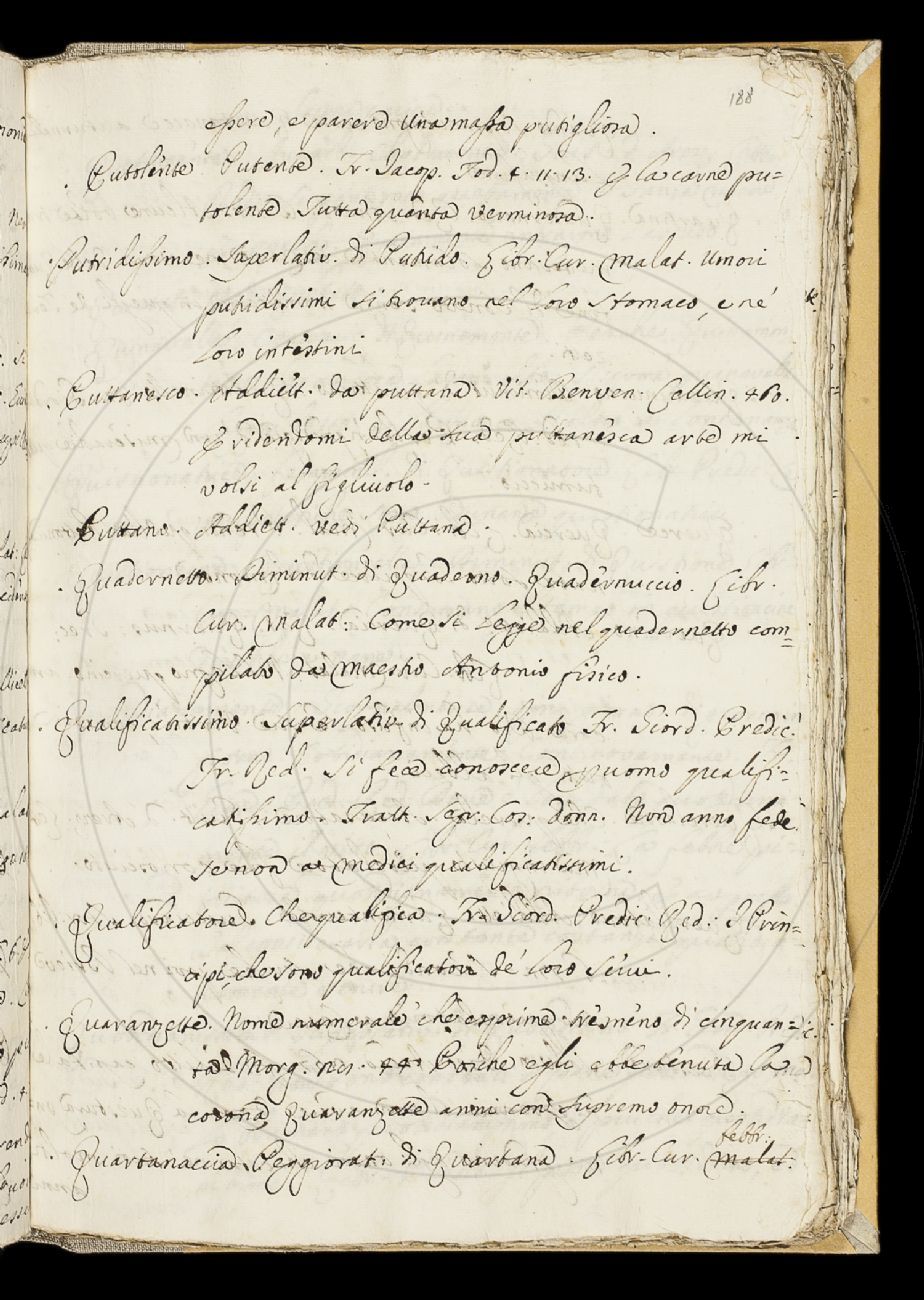 188
essere, e parere una massa putigliosa.
Putolente Putente. Fr. Iacop. Tod. 4. 11. 13. E la carne pu=
tolente Tutta quanta verminosa.
Putridissimo. Superlativ. di Putrido. Libr. Cur. Malat. Umori
putridissimi si trovano nel loro stomaco, e ne'
loro intestini
Puttanesco. Addiett. da puttana Vit. Benven. Cellin. 460.
E ridendomi della sua puttanesca arte mi
volsi al figliuolo.
Puttano. Addiett. vedi Puttana.
Quadernetto. Diminut. di Quaderno. Quadernuccio. Libr.
Cur. Malat: Come si legge nel quadernetto com=
pilato da Maestro Antonio fisico.
Qualificatissimo. Superlativ. di Qualificato Fr. Giord. Predic.
Fr. Red. Si fece conoscere p uomo qualifi=
catissimo. Tratt. Segr. Cos. donn. Non anno fede
se non a medici qualificatissimi.
Qualificatore. Che qualifica. Fr. Giord. Predic. Red. I Prin=
cipi, che sono qualificatori de' loro servi.
Quaranzette. Nome numerale che esprime tre meno di cinquan=
ta Morg. 44 Poiche egli ebbe tenuta la
corona Quaranzette anni con supremo onore.
febbr.
Quartanaccia. Peggiorat. di Quartana. Libr. Cur. malat.